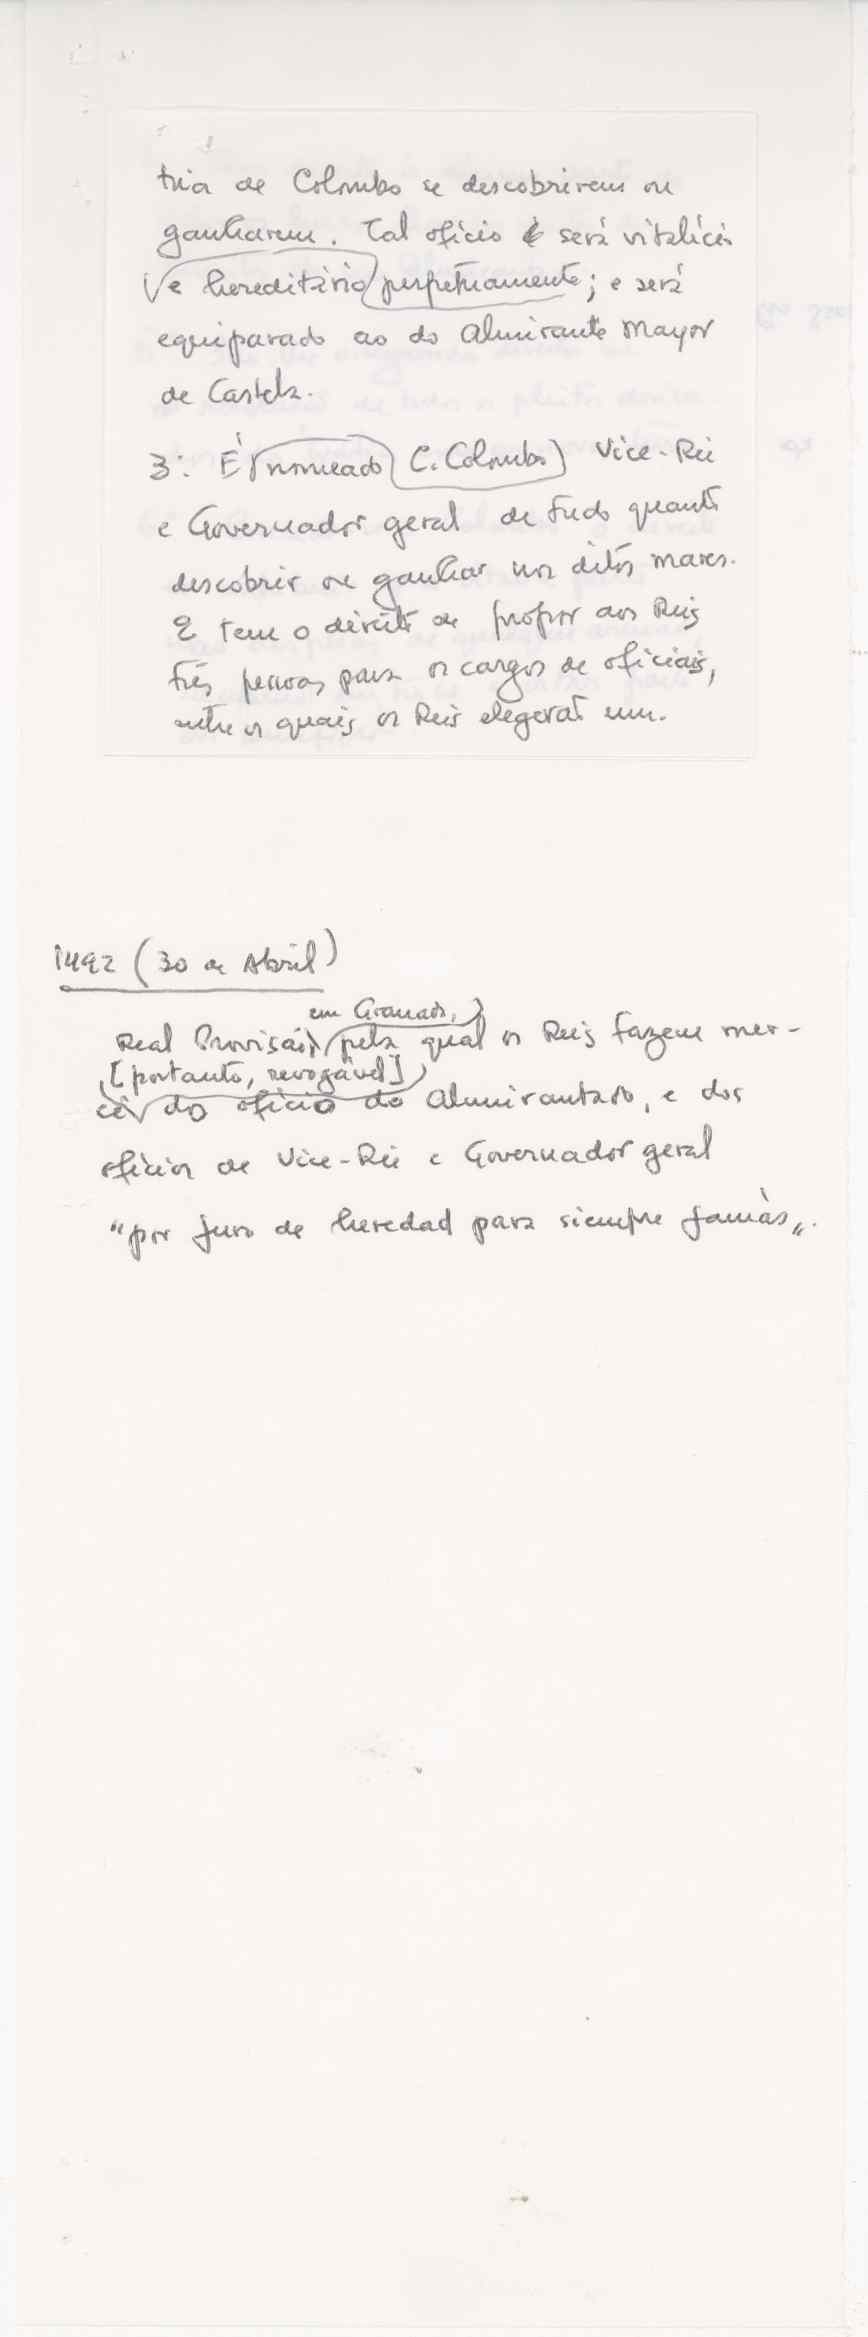 tria de Colombo se descobrirem ou
ganharem. Tal ofício será vitalício
e hereditário perpetuamente; e será
equiparado ao do Almirante Mayor
de Castela.
3: É nomeado C. Colombo) Vice-Rei
e Governador geral de tudo quanto
descobrir ou ganhar nos ditos mares.
E tem o direito de propor aos Reis
três pessoas para os cargos de oficiais,
entre os quais os Reis elegerão um.
1492 (30 de Abril)
em Granada,
Real Provisão, pela qual os Reis fazem mer-
[portanto, revogável]
cê do ofício do Almirantado, e dos
ofícios de Vice-Rei e Governador geral
"por juro de heredad para siempre jamàs".